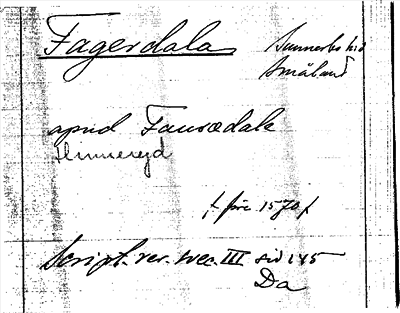 Fagerdala
Sunnerbo hd
Småland
apud Fauradale
Hinneryd
[före 1570]
Script. rer. svec. III sid 145
Da